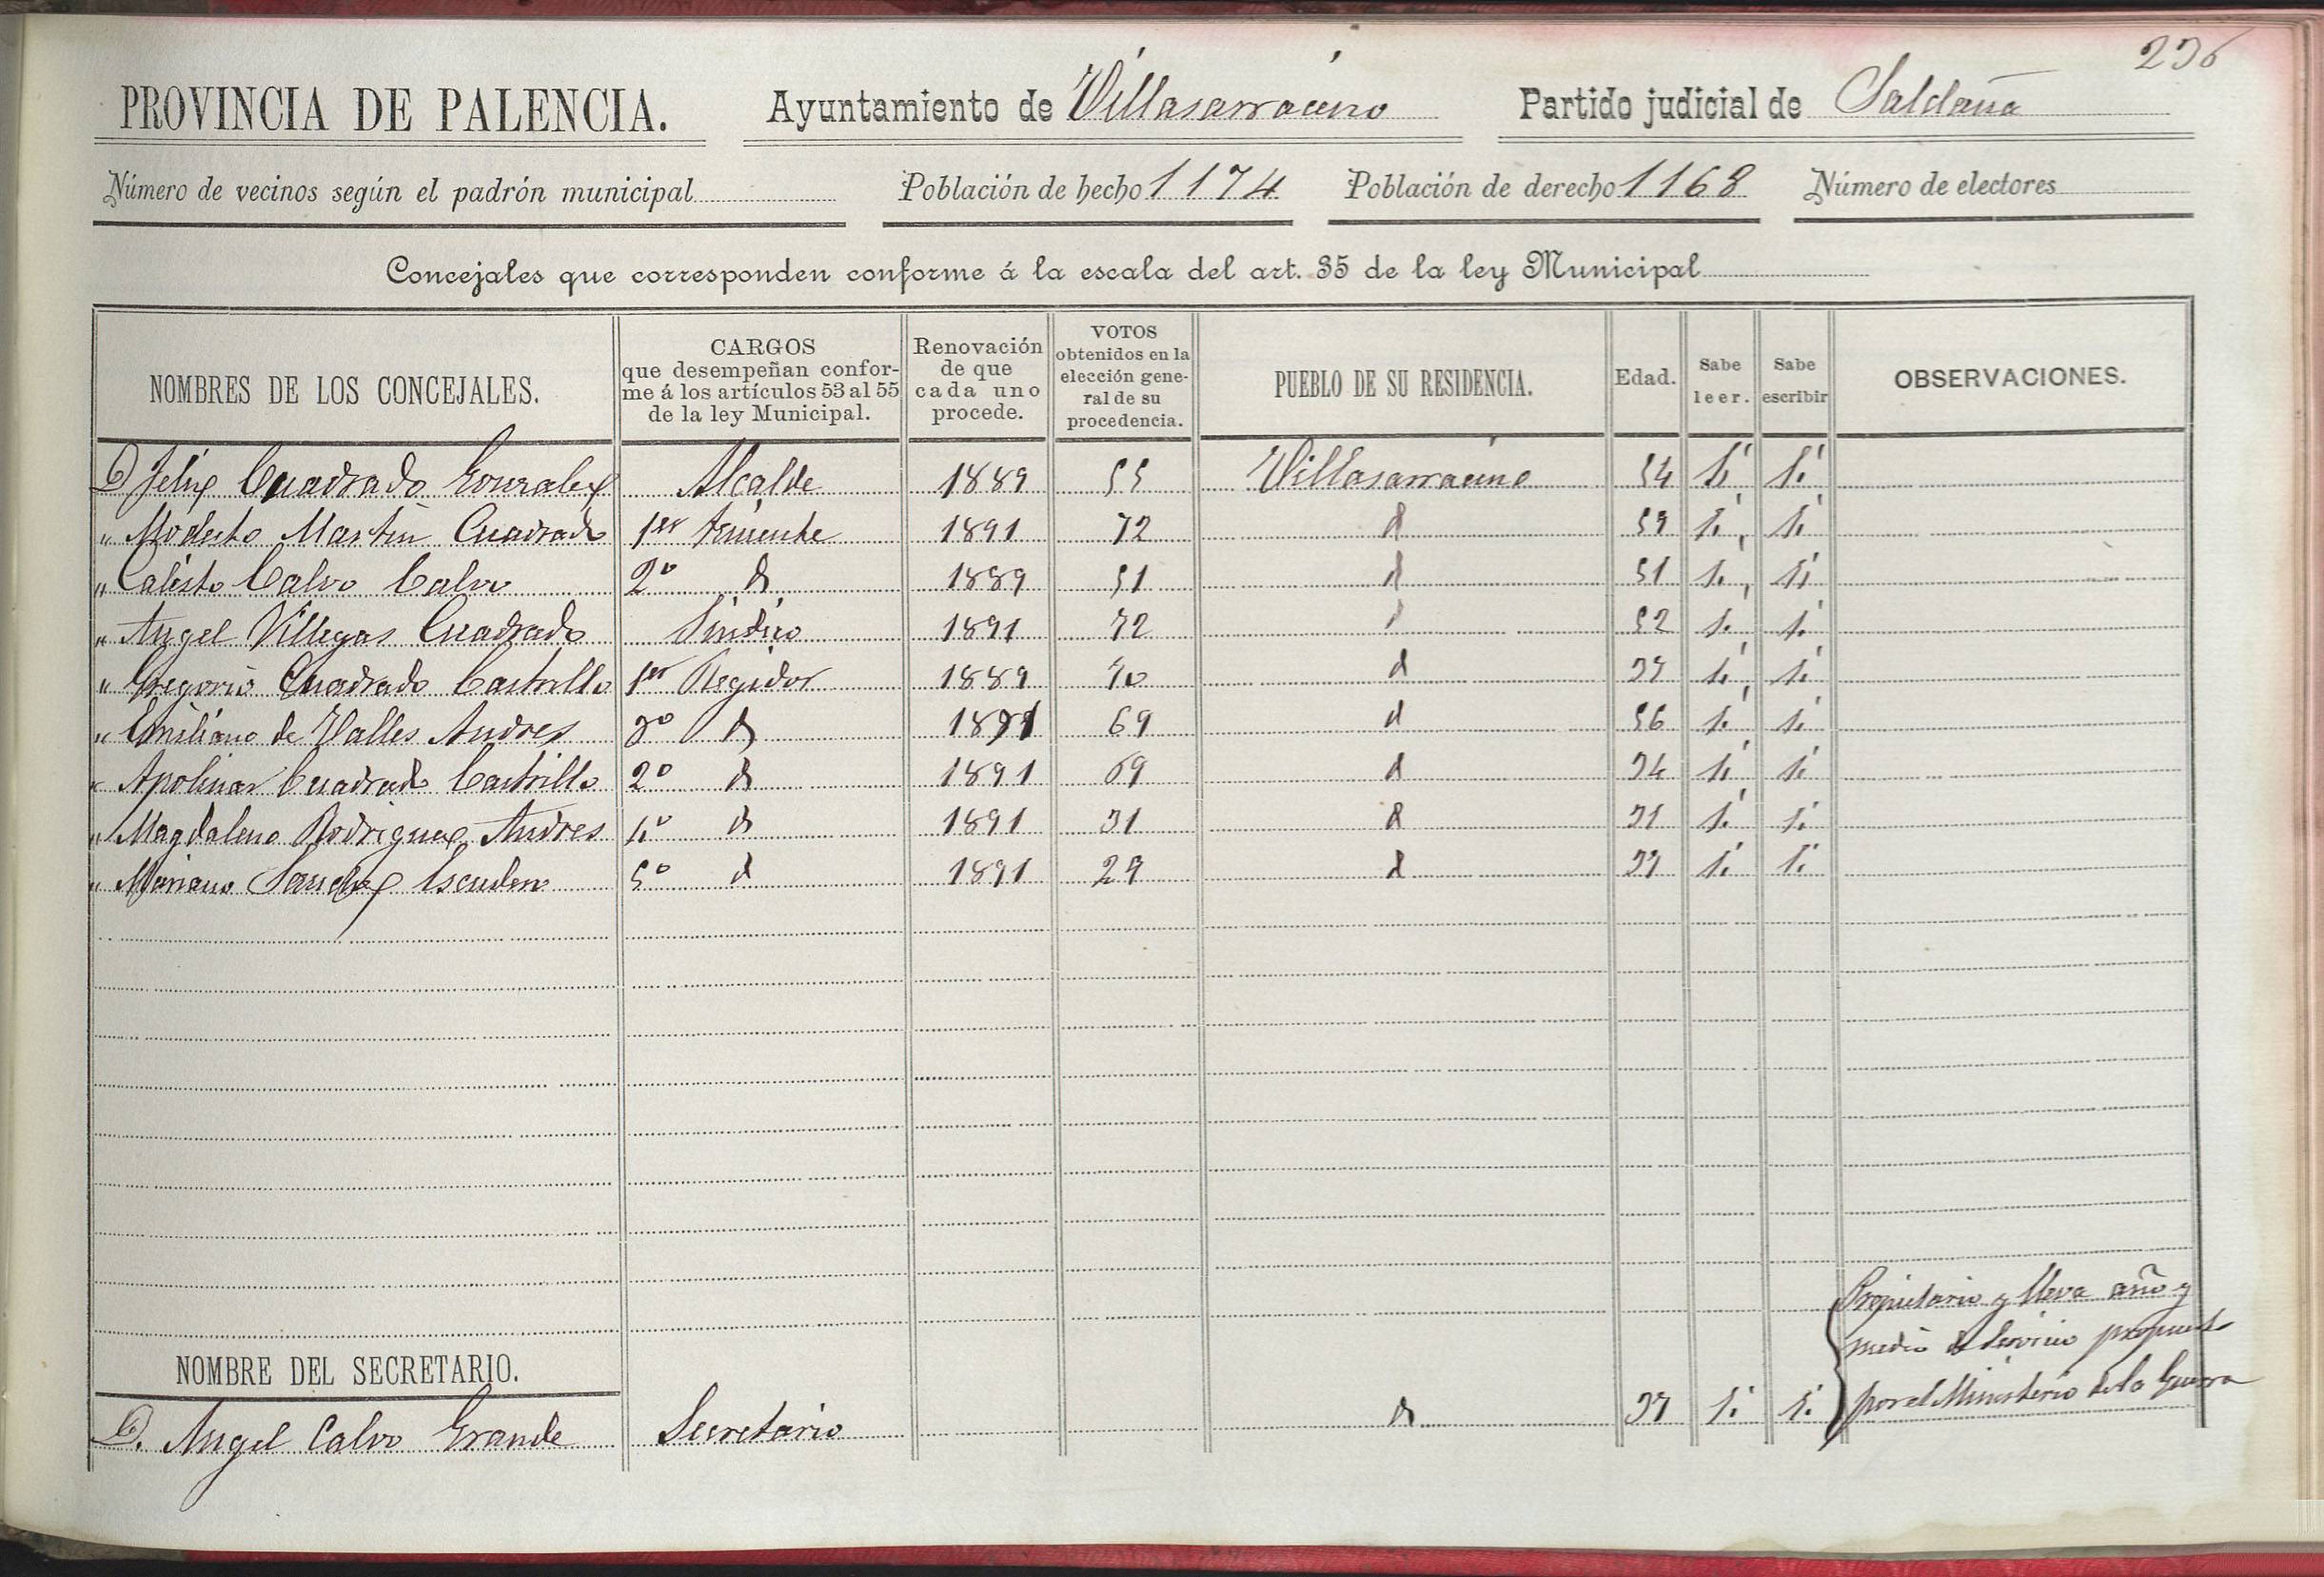 236
PROVINCIA DE PALENCIA. Ayuntamiento de Villasarracino Partido judicial de Saldaña
Número de vecinos según el padrón municipal Población de hecho 1174 Población de derecho 1168 Número de electores
Concejales que corresponden conforme á la escala del art. 35 de la ley Municipal
NOMBRES DE LOS CONCEJALES. CARGOS que desempeñan conforme á los artículos 53 al 55 de la ley Municipal. Renovación de que cada uno procede. VOTOS obtenidos en la elección general de su procedencia. PUEBLO DE SU RESIDENCIA. Edad. Sabe leer. Sabe escribir OBSERVACIONES.
D Felix Cuadrado Gonzalez Alcalde 1889 55 Villasarracino 54 Sí Sí
" Modesto Martin Cuadrado 1er teniente 1891 72 d 59 Sí Sí
" Calisto Calvo Calvo 2º d 1889 51 d 51 Sí Sí
" Angel Villegas Cuadrado Sindico 1891 72 d 52 Sí Sí
" Gregorio Cuadrado Castrillo 1er Regidor 1889 40 d Sí Sí
" Emiliano de Valles Andres d 1891 69 d 56 Sí Sí
" Apolinar Cuadrado Castrillo d 1891 69 d 34 Sí Sí
" Magdaleno Rodriguez Andres 4º d 1891 31 d 31 Sí Sí
" Mariano Sanchez Escudero 5º d 1891 29 d Sí Sí
NOMBRE DEL SECRETARIO.
D. Angel Calvo Grande Secretario d Sí Sí
Propietario y lleva año y
medio de servicio propuesto
por el Ministerio de la Guerra